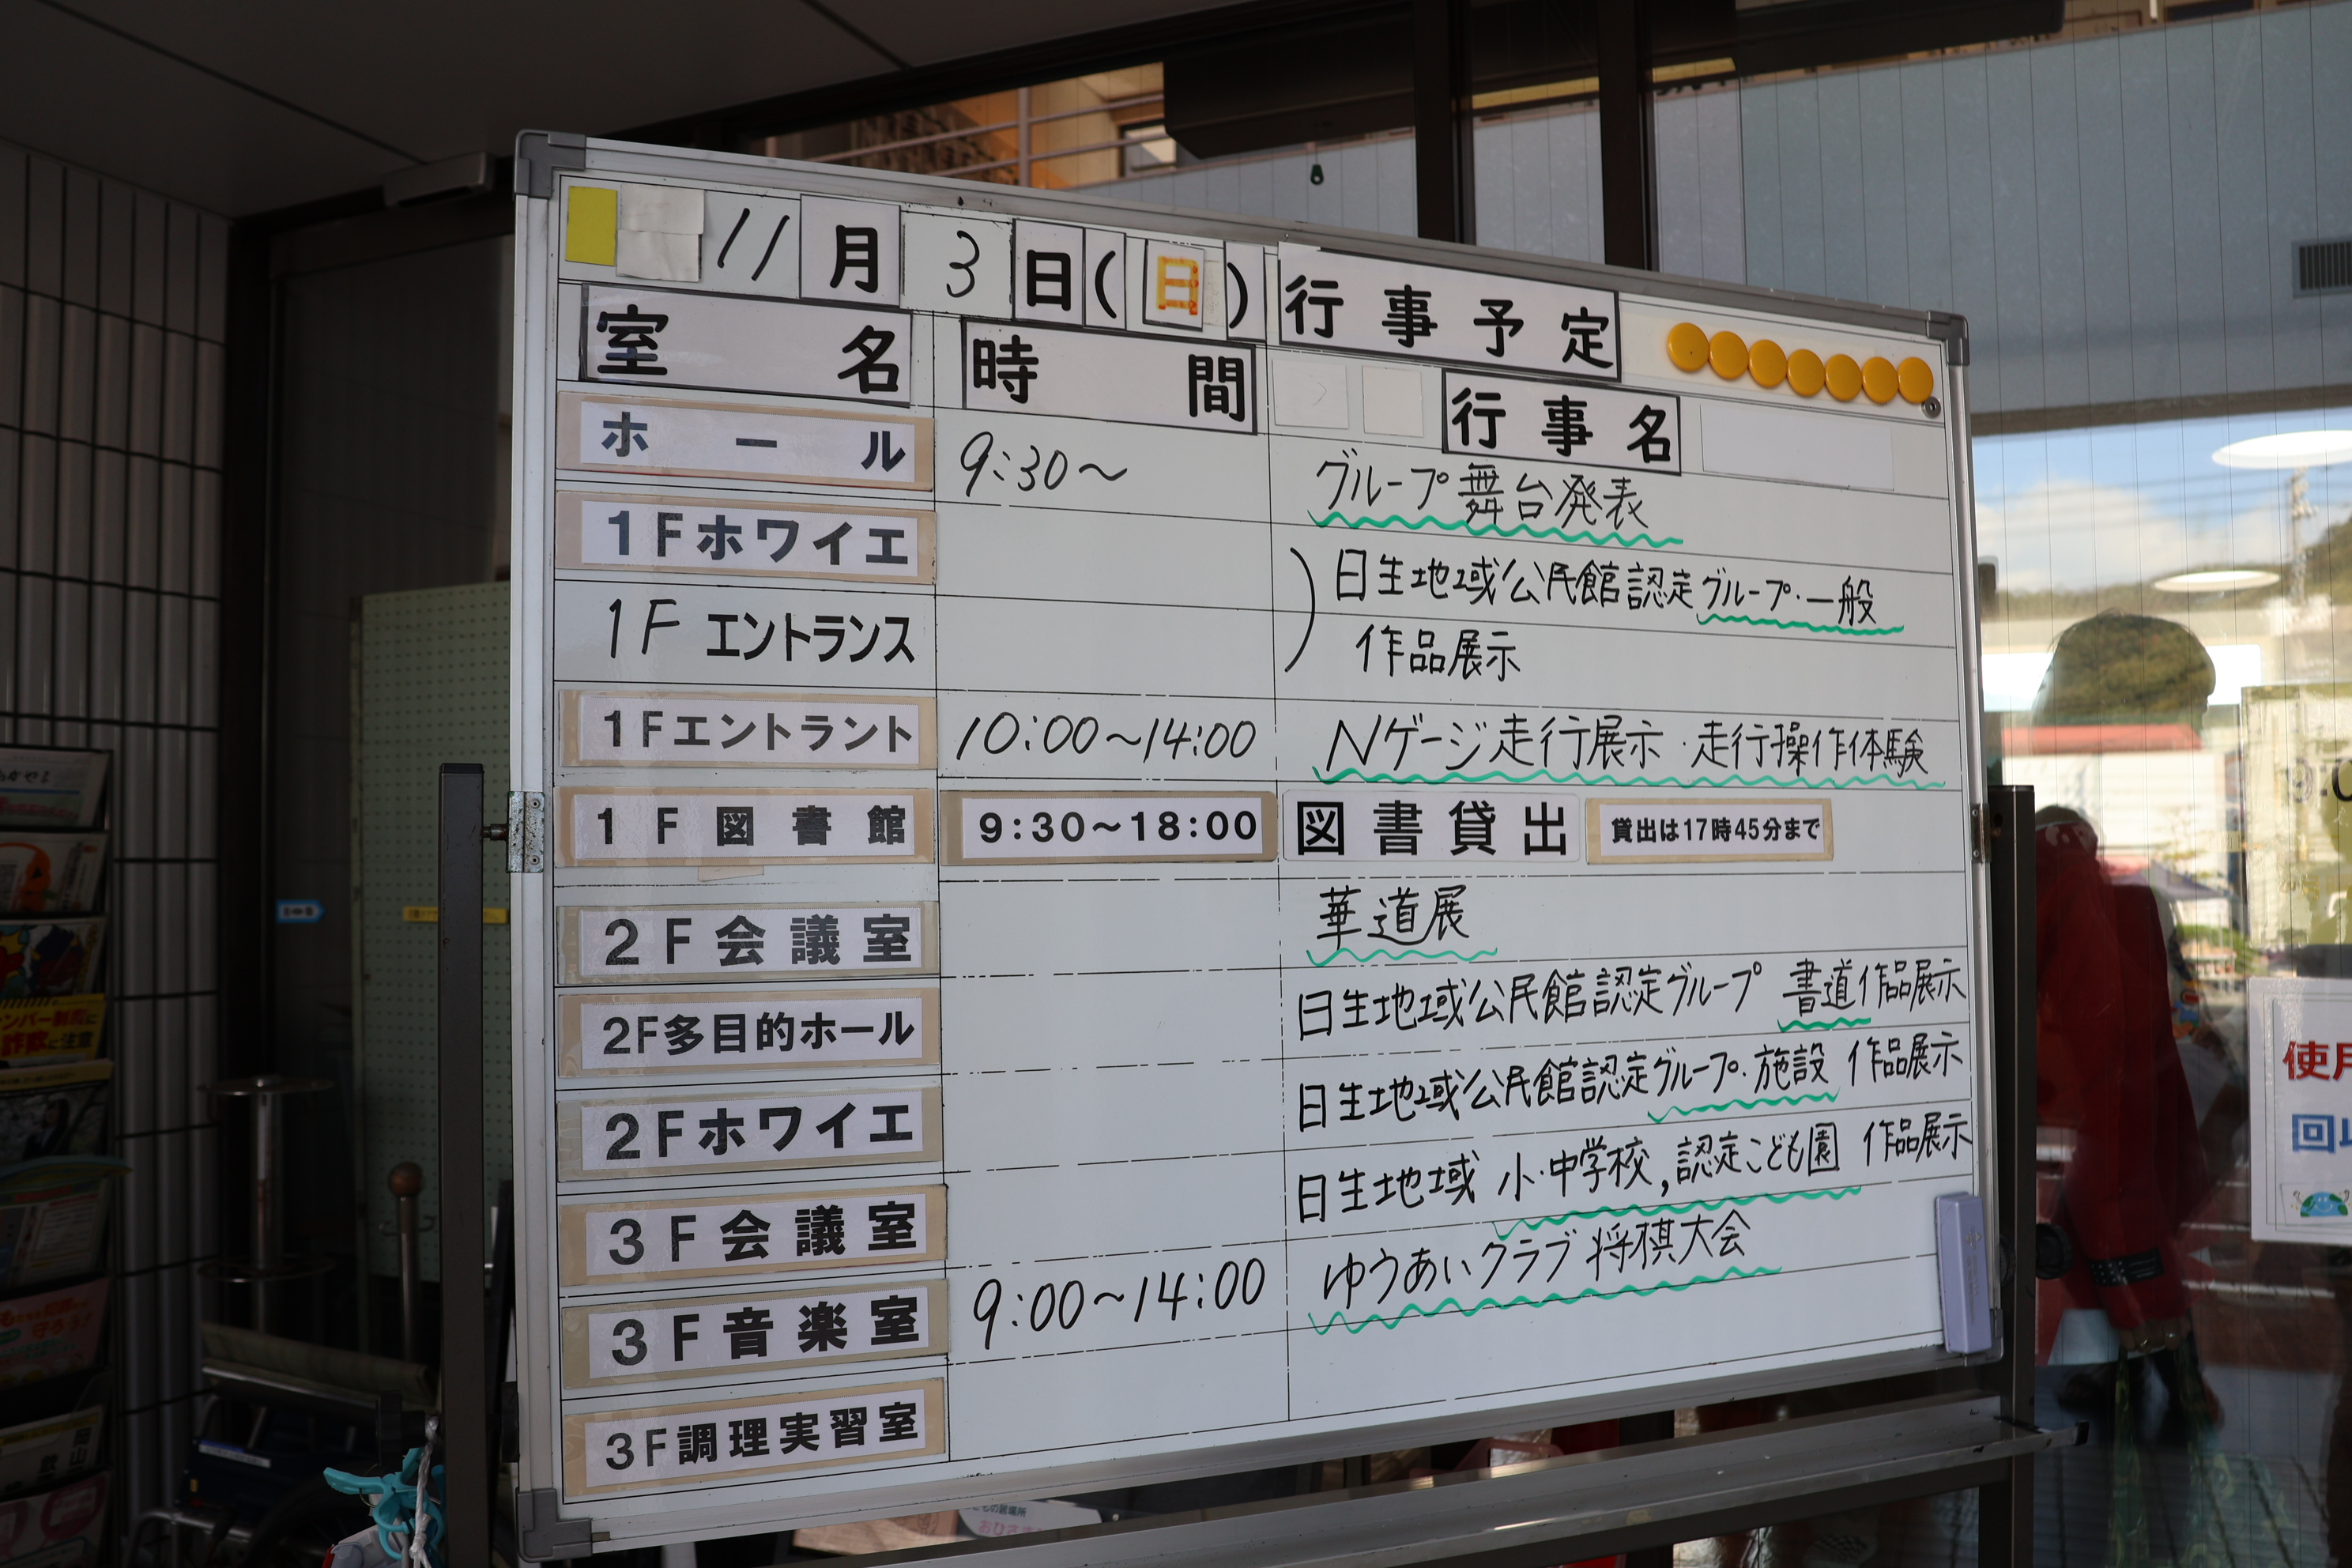 11月3日(日)行事予定
室名 時間 行事名
ホール 9:30～ グループ舞台発表
1Fホワイエ 日生地域公民館認定グループ・一般
1Fエントランス 作品展示
1Fエントラント 10:00～14:00 Nゲージ走行展示・走行操作体験
1F図書館 9:30～18:00 図書貸出 貸出は17時45分まで
2F会議室 華道展
2F多目的ホール 日生地域公民館認定グループ 書道作品展示
2Fホワイエ 日生地域公民館認定グループ・施設 作品展示
3F会議室 日生地域 小・中学校,認定こども園 作品展示
3F音楽室 9:00～14:00 ゆうあいクラブ将棋大会
3F調理実習室
使用
回収